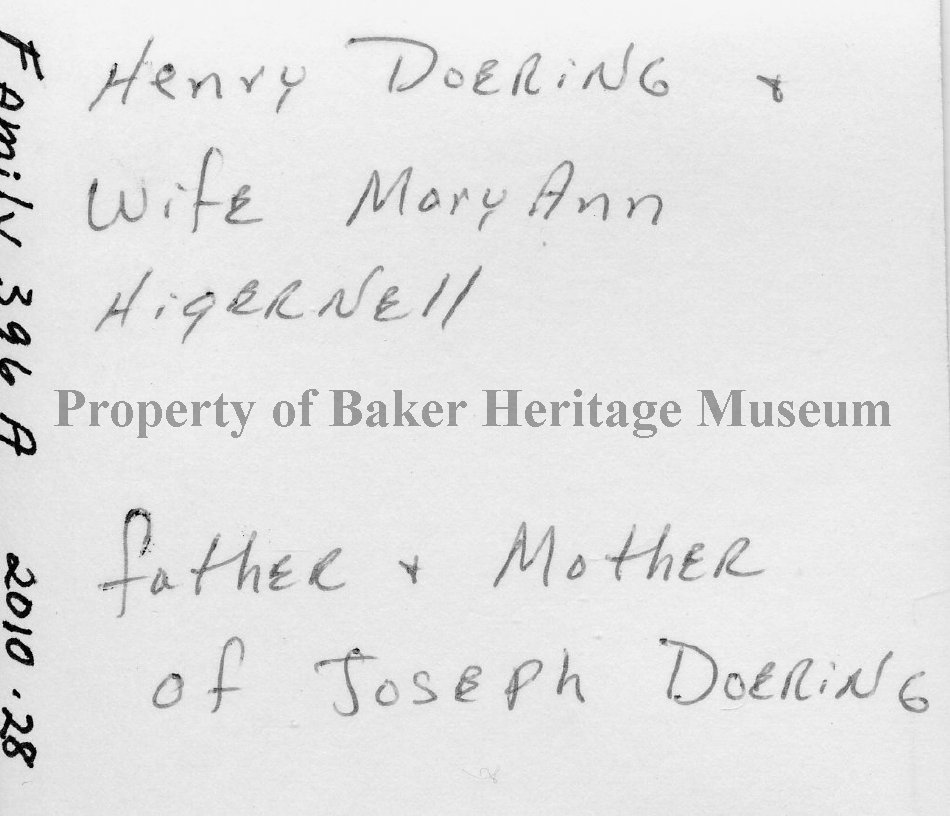 Henry DOERiNG &
WifE Mary Ann
HigERNEll
Property of Baker Heritage Museum
fathER & MothER
of JosEPh DOERiNG
Family 396 A 2010.28